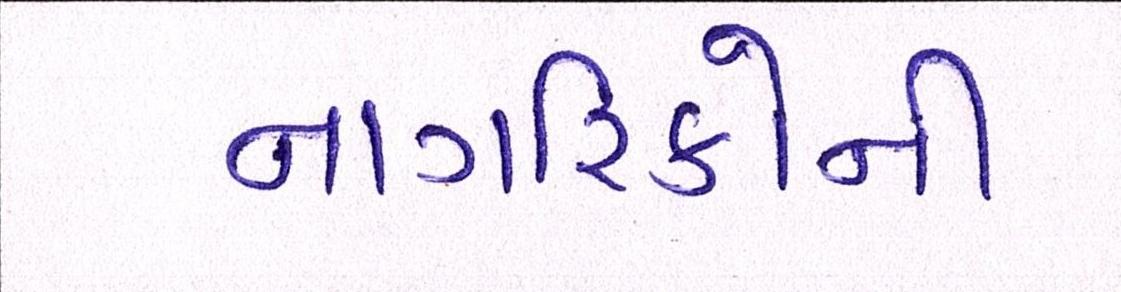 નાગરિકોની